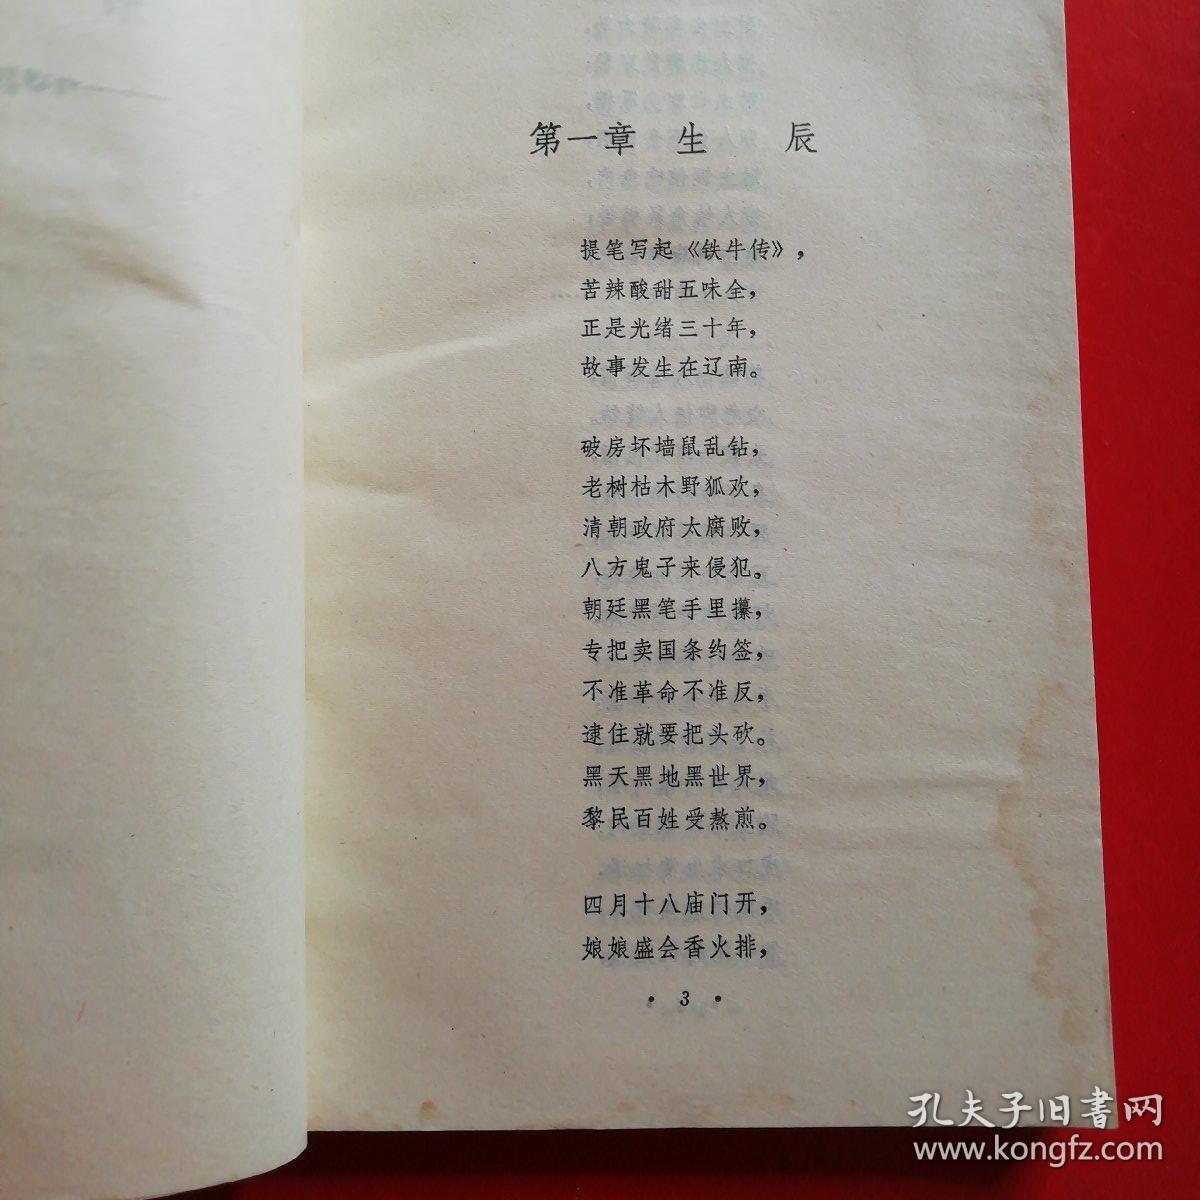 第一章 生 辰
提笔写起《铁牛传》，
苦辣酸甜五味全，
正是光绪三十年，
故事发生在辽南。
破房坏墙鼠乱钻，
老树枯木野狐欢，
清朝政府太腐败，
八方鬼子来侵犯。
朝廷黑笔手里攥，
专把卖国条约签，
不准革命不准反，
逮住就要把头砍。
黑天黑地黑世界，
黎民百姓受熬煎。
四月十八庙门开，
娘娘盛会香火排，
• 3 •
孔夫子旧書网
www.kongfz.com